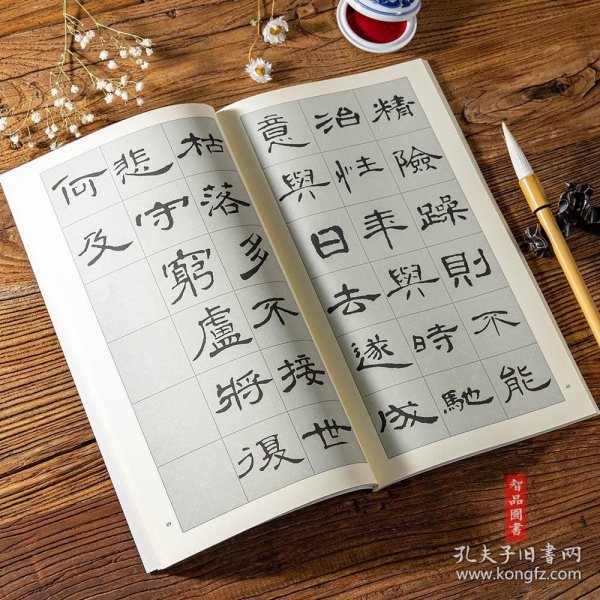 精險躁則不能
治性年與時馳
意與日去遂成
枯落多不接世
悲守窮盧將復
何及
智品圖書
孔夫子旧書网
www.kongfz.com